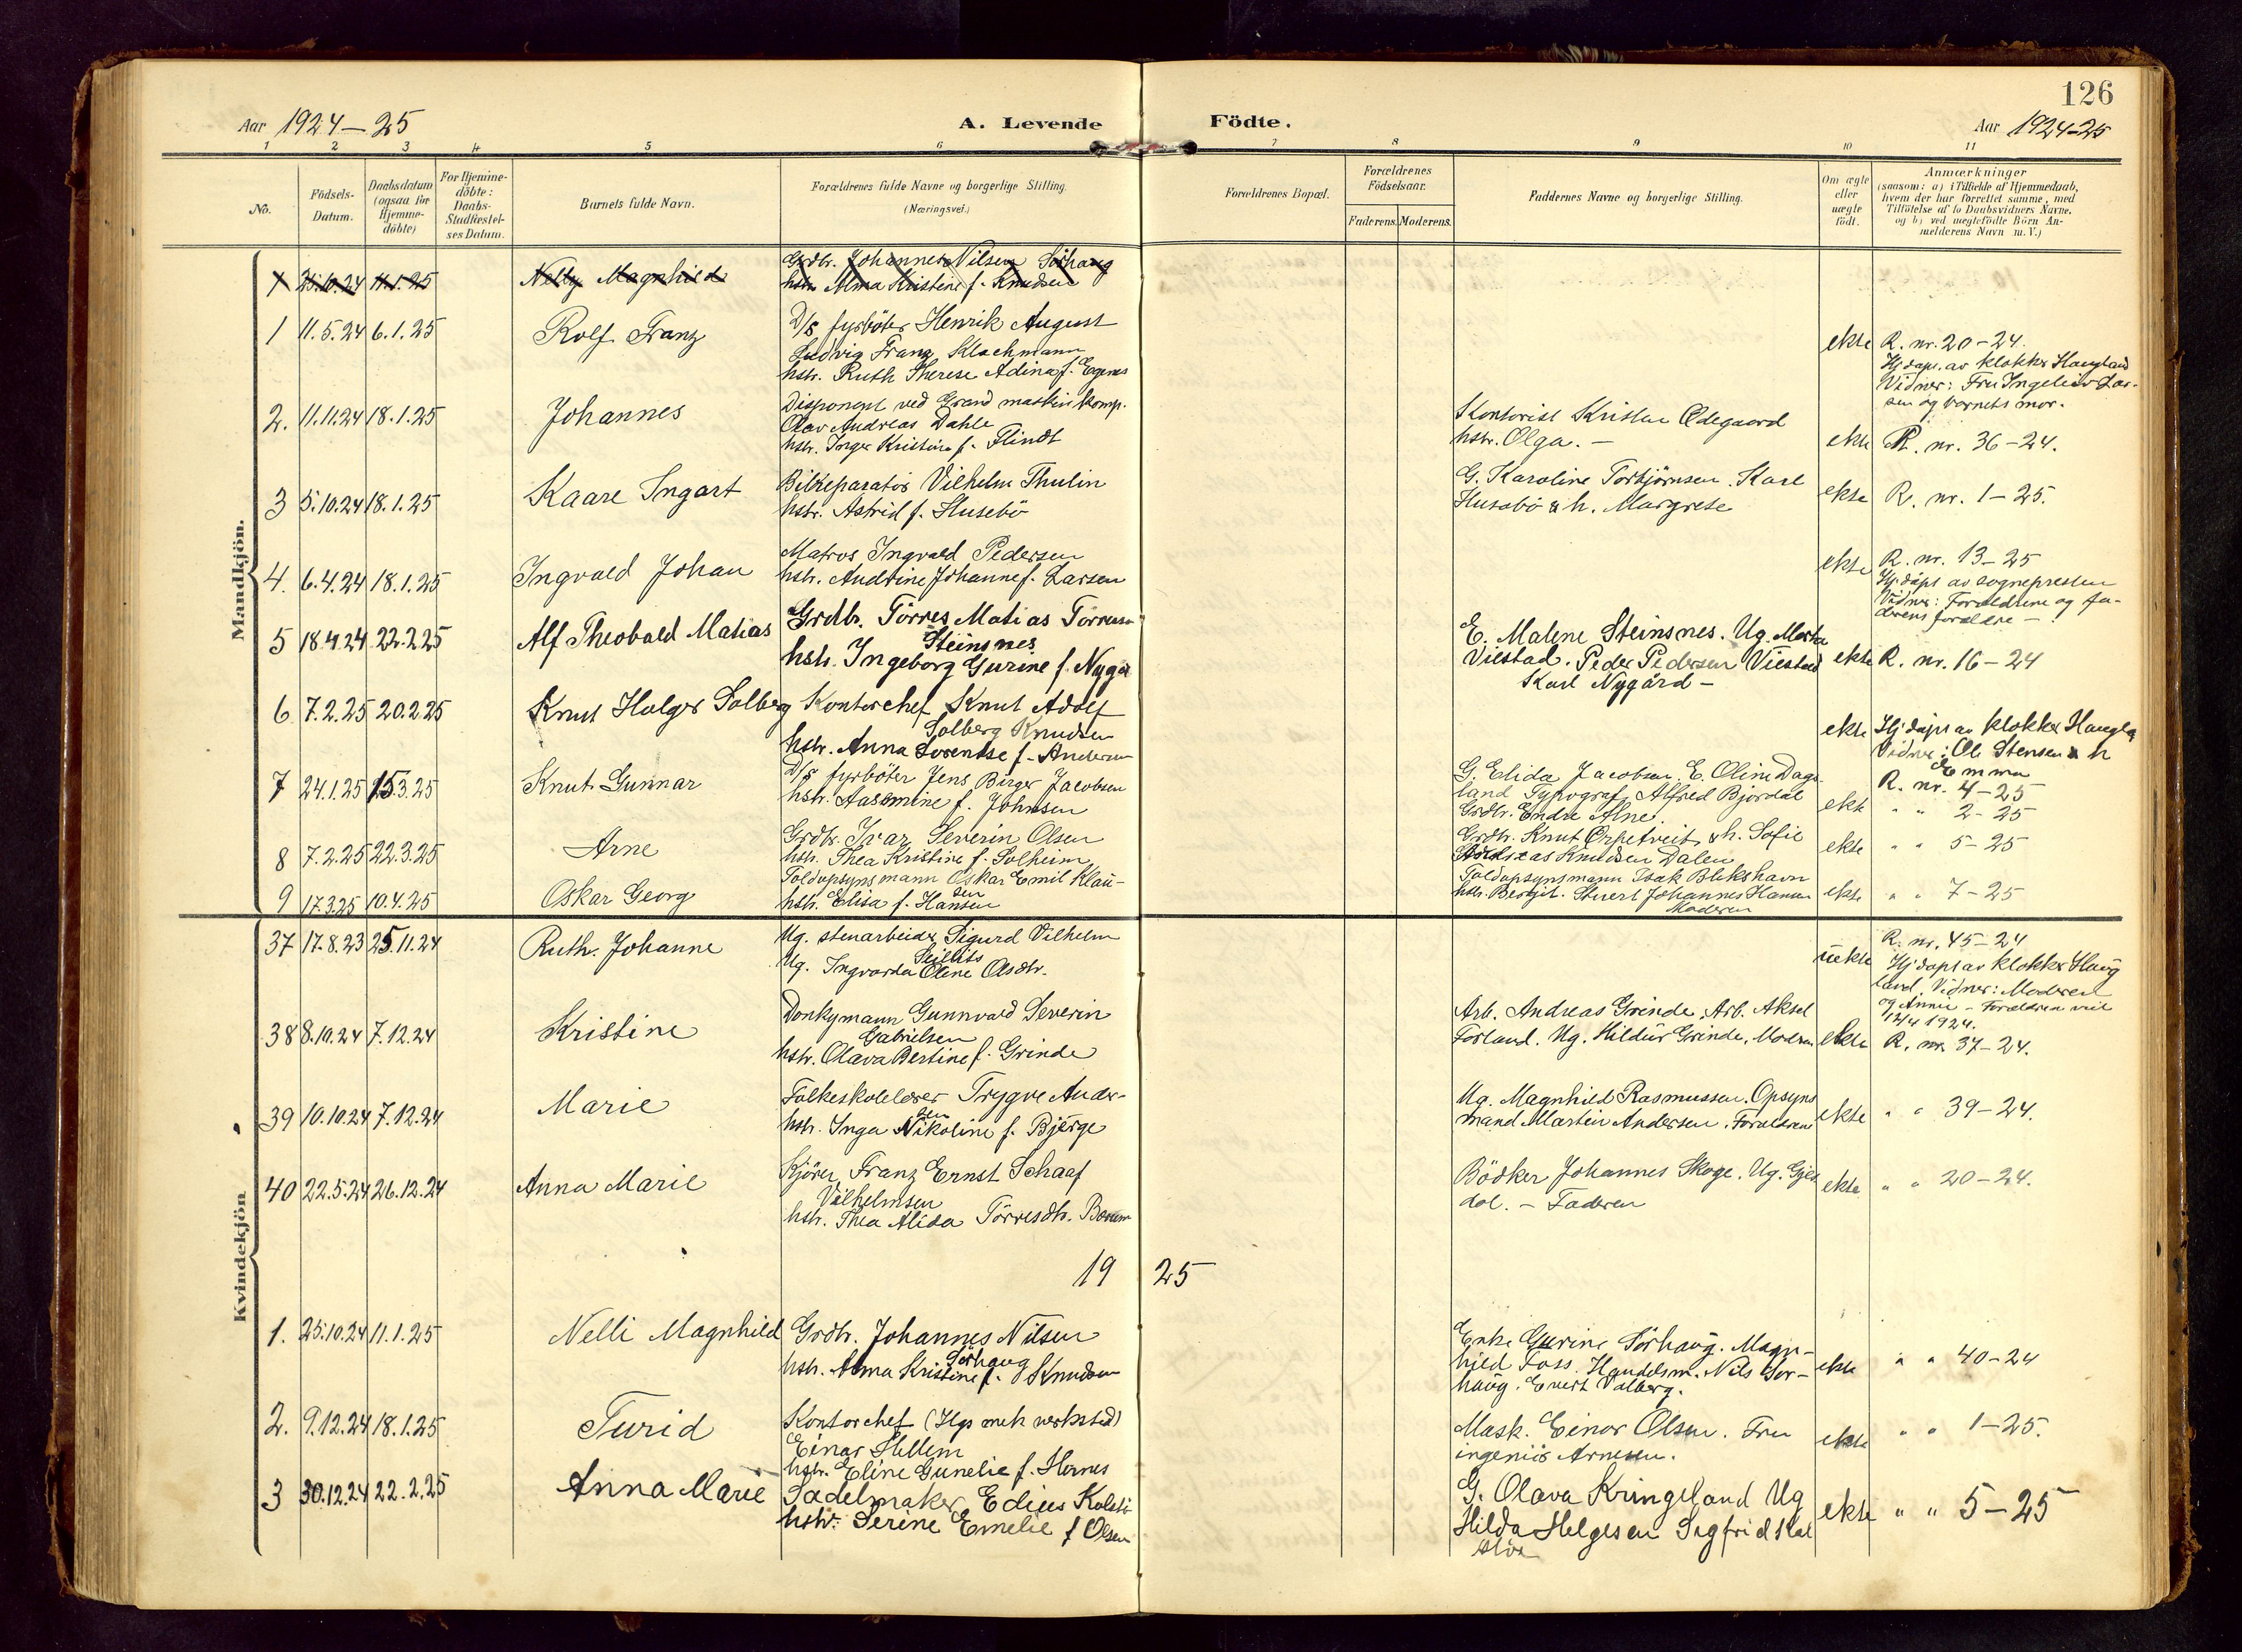 126
Aar 1924-25
A. Levende Födte.
Aar 1924-25
1 2 3 4 5 6 7 8 9 10 11
No.
Födsels-Datum.
Daabsdatum (ogsaa for Hjemme-döbte)
For Hjemme-döbte: Daabs-Stadfæstel-ses Datum.
Barnets fulde Navn.
Forældrenes fulde Navne og borgerlige Stilling. (Næringsvei.)
Forældrenes Bopæl.
Forældrenes Födselsaar.
Faderens. Moderens.
Faddernes Navne og borgerlige Stilling.
Om ægte eller uægte födt.
Anmærkninger
(saasom: a) i Tilfælde af Hjemmedaab,
hvem der har forrettet samme, med
Tilföielse af to Daabsvidners Navne.
og b) ved uægtefödte Börn An-
melderens Navn m. V.)
Mandkjön.
1 25.10.24 11.1.25 Nelly Magnhild Grdbr. Johannes Nilsen Sörhaug
hstr. Alma Kristine f. Knudsen
1 11.5.24 6.1.25 Rolf Franz D/s fyrböter Henrik August
Ludvig Franz Klochmann
hstr. Ruth Therese Adina f. Egenes
ekte R. nr. 20-24.
Hj.døpt. av klokker Haugland
Vidner: Fru Ingeleiv Lar-
sen og barnets mor.
2. 11.11.24 18.1.25 Johannes Disponent ved Grand maskin komp.
Olav Andreas Dahle
hstr. Inga Kristine f. Flindt
Kontorist Kristen Ødegaard
hstr. Olga. -
ekte R. nr. 36-24.
3 5.10.24 18.1.25 Kaare Ingart Bilreparatör Vilhelm Thulin
hstr. Astrid f. Husebö
G. Karoline Torbjörnsen. Karl
Husebö & h. Margrete
ekte R. nr. 1-25.
4. 6.4.24 18.1.25 Ingvald Johan Matros Ingvald Pedersen
hstr. Andrine Johanne f. Larsen
ekte R. nr. 13-25
Hj.döpt av sognepresten
Vidner: Foreldrene og fa-
derens foreldre -
5 18.4.24 22.2.25 Alf Theobald Matias Grdbr. Törres Matias Törresen
Steinsnes
hstr. Ingeborg Gurine f. Nygår
E. Malene Steinsnes. Ug. Marta
Viestad. Peder Pedersen Viestad
Karl Nygård -
ekte R. nr. 16-24
6 7.2.25 20.2.25 Knut Holger Solberg Kontorchef Knut Adolf
Solberg Knudsen
hstr. Anna Lorentse f. Andersen
ekte Hj.døpt av klokker Haugla
Vidner: Ole Stensen & h
Emma
R. nr. 4-25
7 24.1.25 15.3.25 Knut Gunnar D/s fyrböter Jens Birger Jacobsen
hstr. Aasmine f. Johnsen
G. Elida Jacobsen. E. Oline Dage-
land Typograf Alfred Bjordal
Grdbr. Endre Alne.
ekte " " 2-25
8 7.2.25 22.3.25 Arne Grdbr. Ivar Severin Olsen
hstr. Thea Kristine f. Solheim
Grdbr. Knut Orpetveit & h. Sofie
Andreas Knudsen Dalen
ekte " " 5-25
9 17.3.25 10.4.25 Oskar Georg Toldopsynsmann Oskar Emil Klau-
sen
hstr. Elisa f. Hansen
Toldopsynsmann Isak Blikshavn
hstr. Bergit. Stuert Johannes Hansen
Moderen
ekte " " 7-25
Kvindekjön
37 17.8.23 25.11.24 Ruth Johanne Ug. stenarbeider Sigurd Vilhelm
Ug. Ingvarda Oline Olsdtr.
uekte R. nr. 45-24
Hj.døpt av klokker Haug
land. Vidner: Moderen
og Annie - Foreldrene viet
12/4 1924.
38 8.10.24 7.12.24 Kristine Donkymann Gunnvald Severin
Gabrielsen
hstr. Olava Bertine f. Grinde
Arb. Andreas Grinde. Arb. Aksel
Förland. Ug. Hildur Grinde. Moderen
ekte R. nr. 37-24.
39 10.10.24 7.12.24 Marie Folkeskolelærer Trygve Ander-
sen
hstr. Inga Nikoline f. Bjerge
Ug. Magnhild Rasmussen. Opsyns
mand Martin Andersen. Foreldrene
ekte " " 39-24.
40 22.5.24 26.12.24 Anna Marie Kjörer Franz Ernst Schaaf
Vilhelmsen
hstr. Thea Alida Törresdtr.
Bödker Johannes Skoge. Ug. Gjer
dol. - Faderen
ekte " " 20-24.
19 25
1. 25.10.24 11.1.25 Nelli Magnhild Grdbr. Johannes Nilsen
Sörhaug
hstr. Alma Kristine f. Knudsen
Enke Gurine Sörhaug. Magn-
hild Foss. Handelsm. Nils Sör-
haug. Evert Valberg.
ekte " " 40-24
2. 9.12.24 18.1.25 Turid Kontorchef (Hgs mek verksted)
Einar Hellem
hstr. Eline Gunelie f. Hornes
Mask. Einar Olsen. Fru
ingeniör Arnesen.
ekte " " 1-25.
3 30.12.24 22.2.25 Anna Marie Sadelmaker Edius Kolstö
hstr. Serine Emelie f Olsen
G. Olava Kringeland Ug
Hilda Helgesen Sigfrid Kol
stöe
ekte " " 5-25